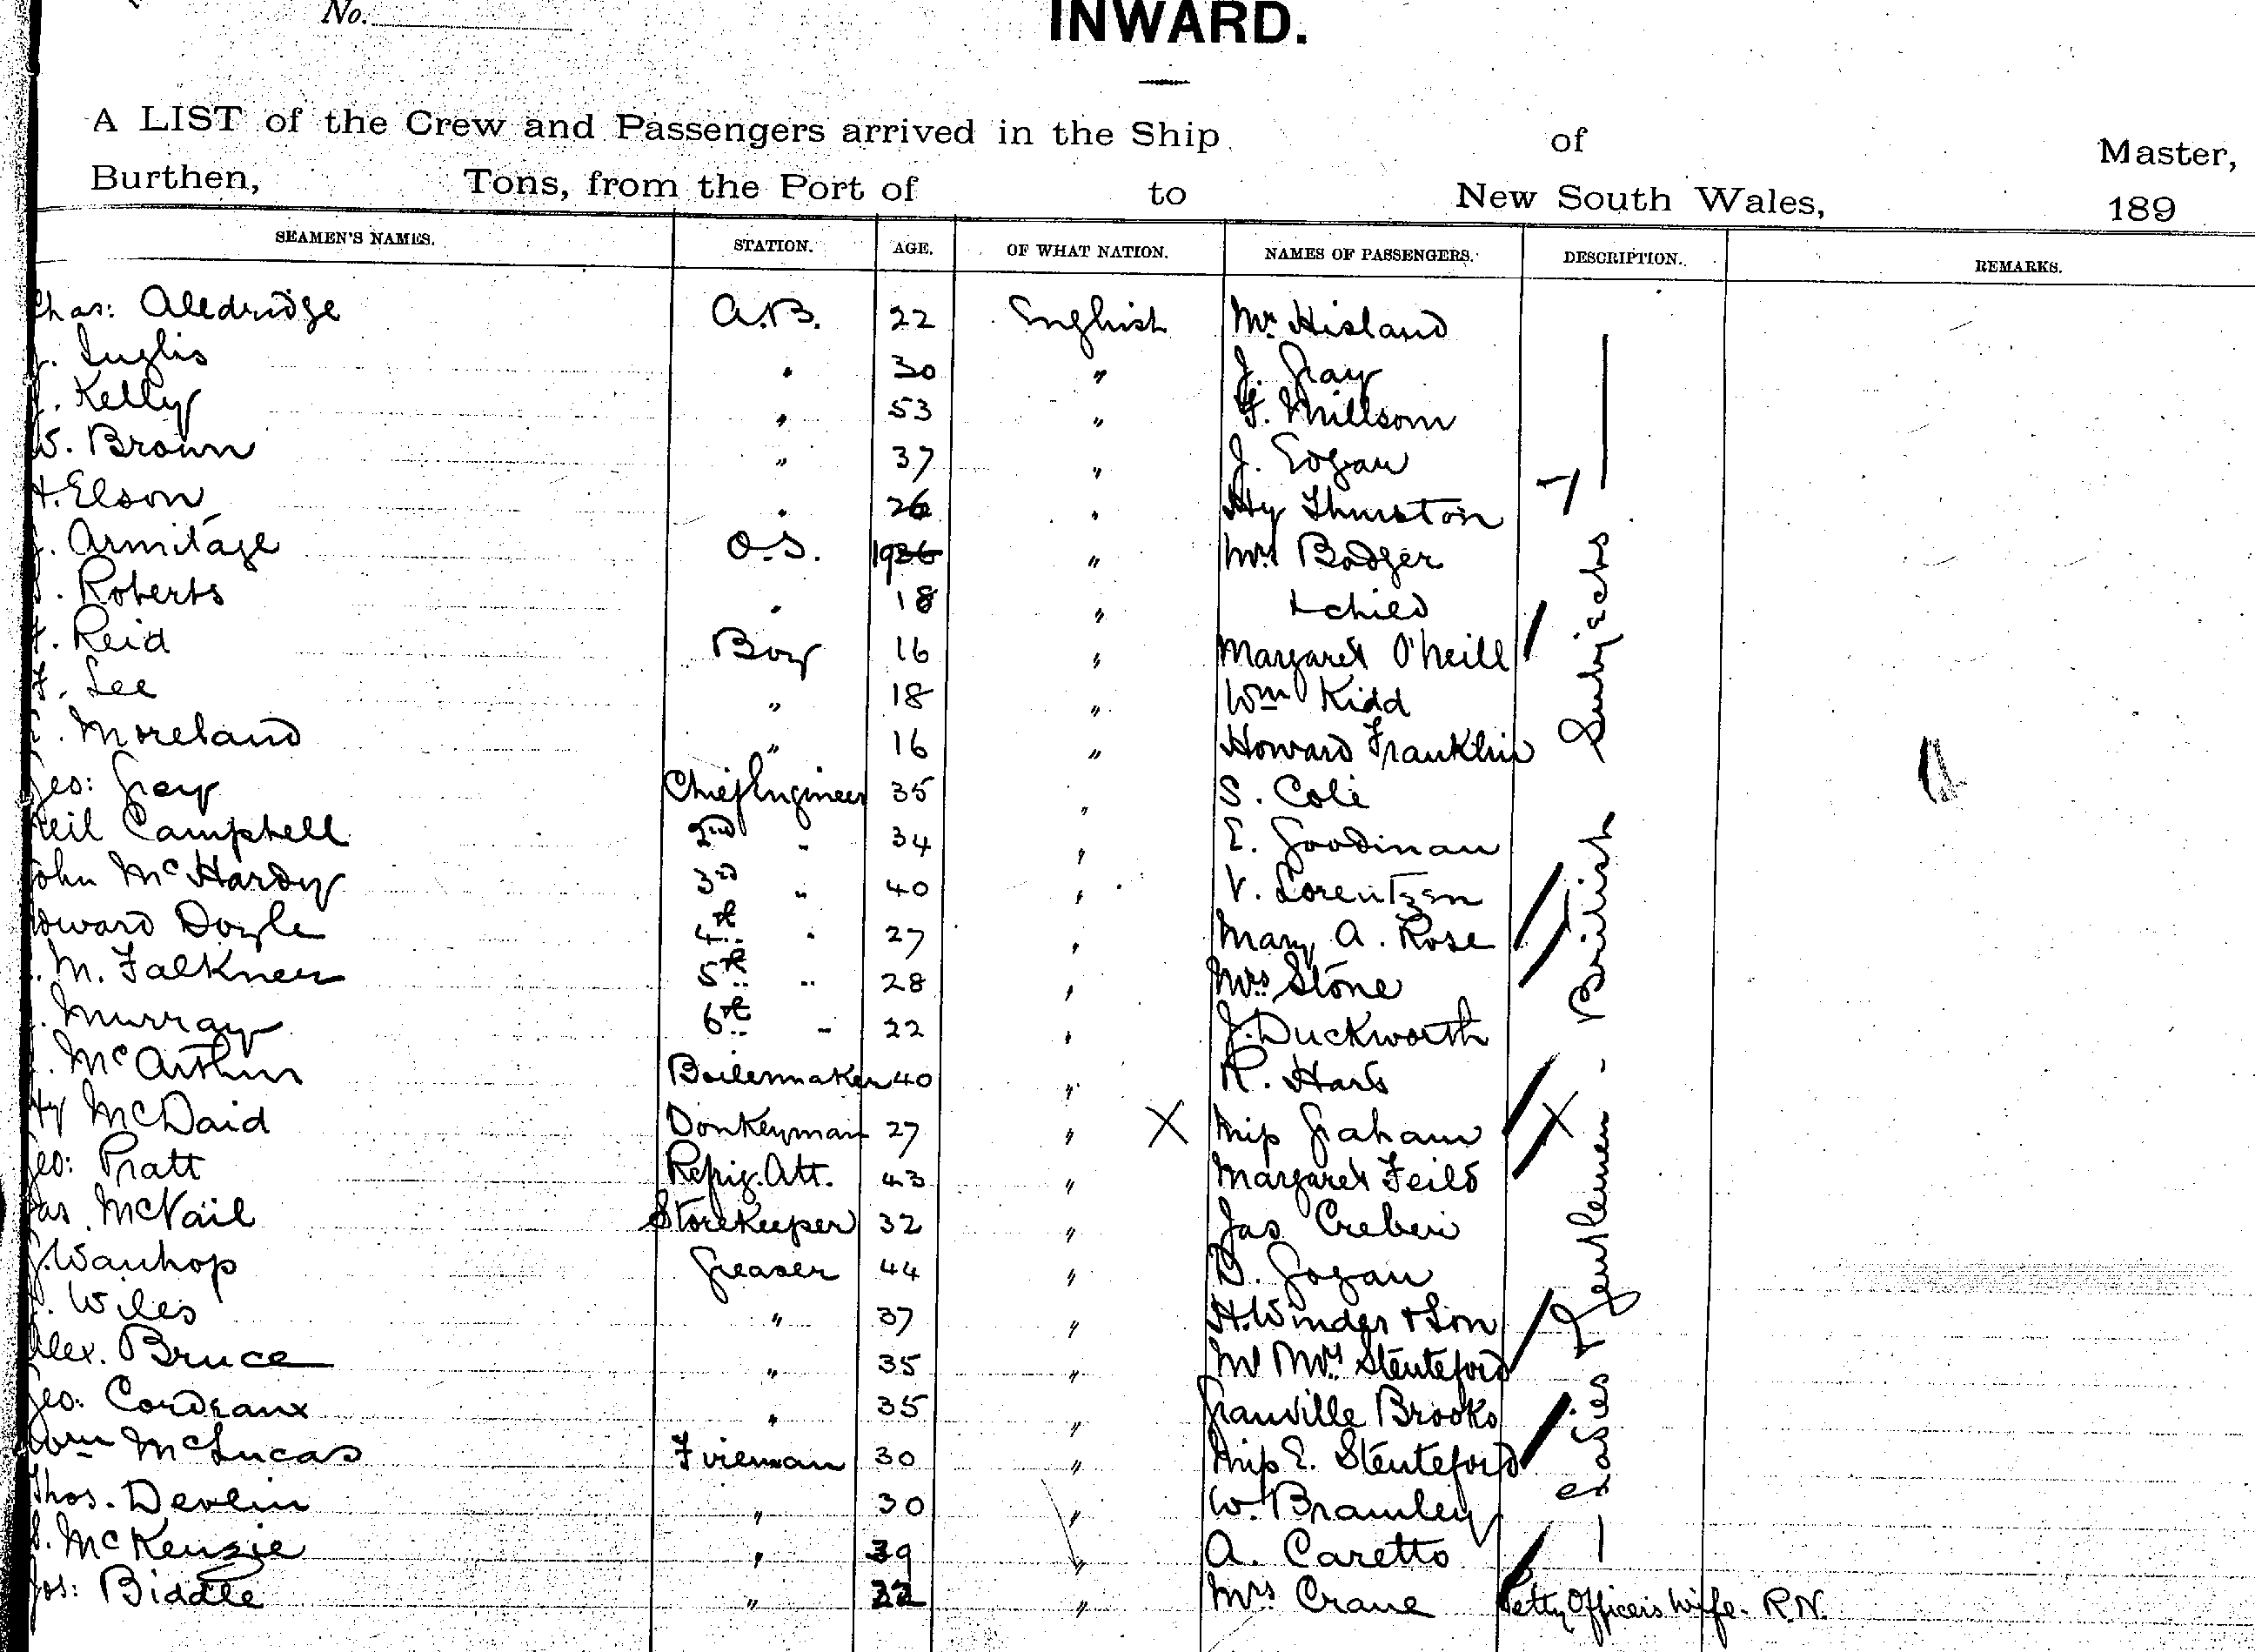 No.
INWARD.
A LIST of the Crew and Passengers arrived in the Ship of Master,
Burthen, Tons, from the Port of to New South Wales, 189
SEAMEN'S NAMES. STATION. AGE. OF WHAT NATION. NAMES OF PASSENGERS. DESCRIPTION. REMARKS.
Chas: Aledridge A.B. 22 English Mr Hisland
Inglis " 30 " J. Gray
Kelly " 53 " Millsom
W. Brown " 37 " J. Eogan
H. Elson " 26 " Hy Thurston
J. Armitage O.S. 19 36 " Mrs Bodger
Roberts " 18 " + child
Reid Boy 16 " Margaret O'Neill
Lee " 18 " Wm Kidd
Moreland " 16 " Howard Franklin
Geo: Gray Chief Engineer 35 " S. Cole
Neil Campbell 2nd " 34 " E. Goodman
John McHardy 3rd " 40 " V. Lorentzen
Howard Doyle 4th " 27 " Mary A. Rose
M. Falkner 5th " 28 " Mrs Stone
Murray 6th " 22 " J. Duckworth
McArthur Boilermaker 40 " R. Hart
Hy McDaid Donkeyman 27 " X Miss Graham X
Geo: Pratt Refrig. Att. 43 " Margaret Feild
Jas. McNail Storekeeper 32 " Jas Creber
J. Wauhop Greaser 44 " D. Gogan
Wiles " 37 " H. Winder + Son
Alex. Bruce " 35 " Mr Mrs Stenteford
Geo: Cordeaux " 35 " Granville Brooks
Wm McLucas Fireman 30 " Miss E. Stenteford
Thos. Devlin " 30 " W. Bramley
McKenzie " 39 " A. Caretto
Jos: Biddle " 32 " Mrs Crane Petty Officers Wife. R.N.
Ladies Gentlemen - British Subjects